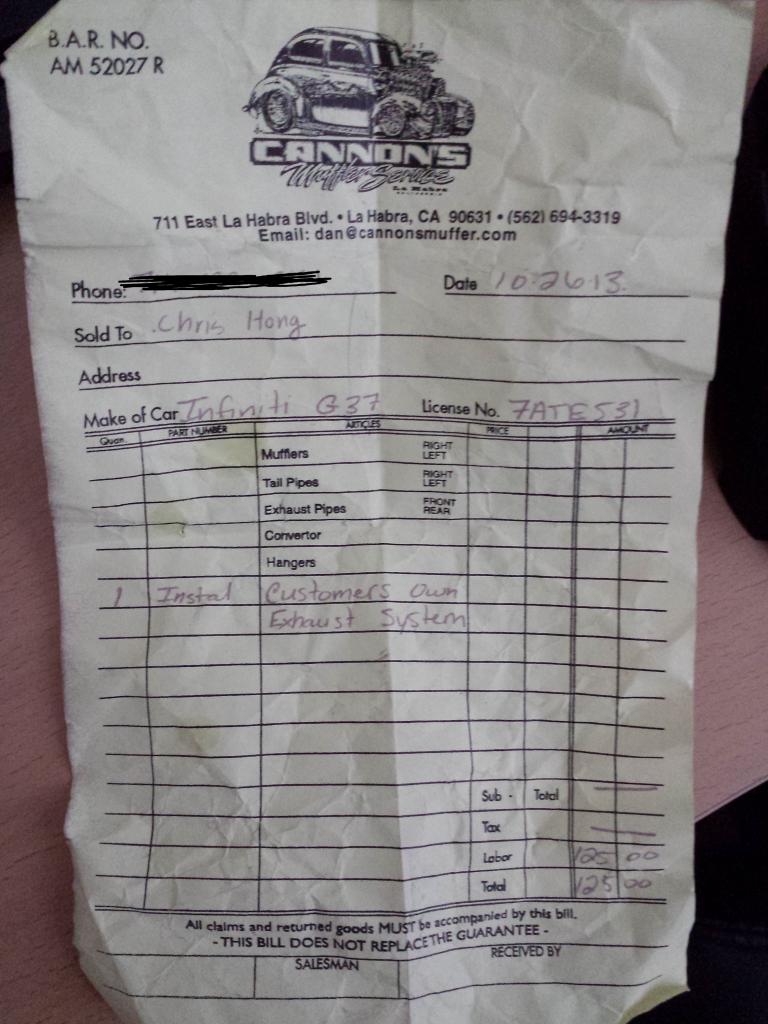 B.A.R. NO.
AM 52027 R
CANNON'S
Muffler Service
La Habra
CALIFORNIA
711 East La Habra Blvd. • La Habra, CA 90631 • (562) 694-3319
Email: dan@cannonsmuffer.com
Phone: Date 10-26-13
Sold To Chris Hong
Address
Make of Car Infiniti G37 License No. 7ATE531
Quan. PART NUMBER ARTICLES PRICE AMOUNT
Mufflers RIGHT LEFT
Tail Pipes RIGHT LEFT
Exhaust Pipes FRONT REAR
Convertor
Hangers
1 Instal Customers Own
Exhaust System
Sub - Total —
Tax —
Labor 125 00
Total 125 00
All claims and returned goods MUST be accompanied by this bill.
- THIS BILL DOES NOT REPLACE THE GUARANTEE -
SALESMAN RECEIVED BY